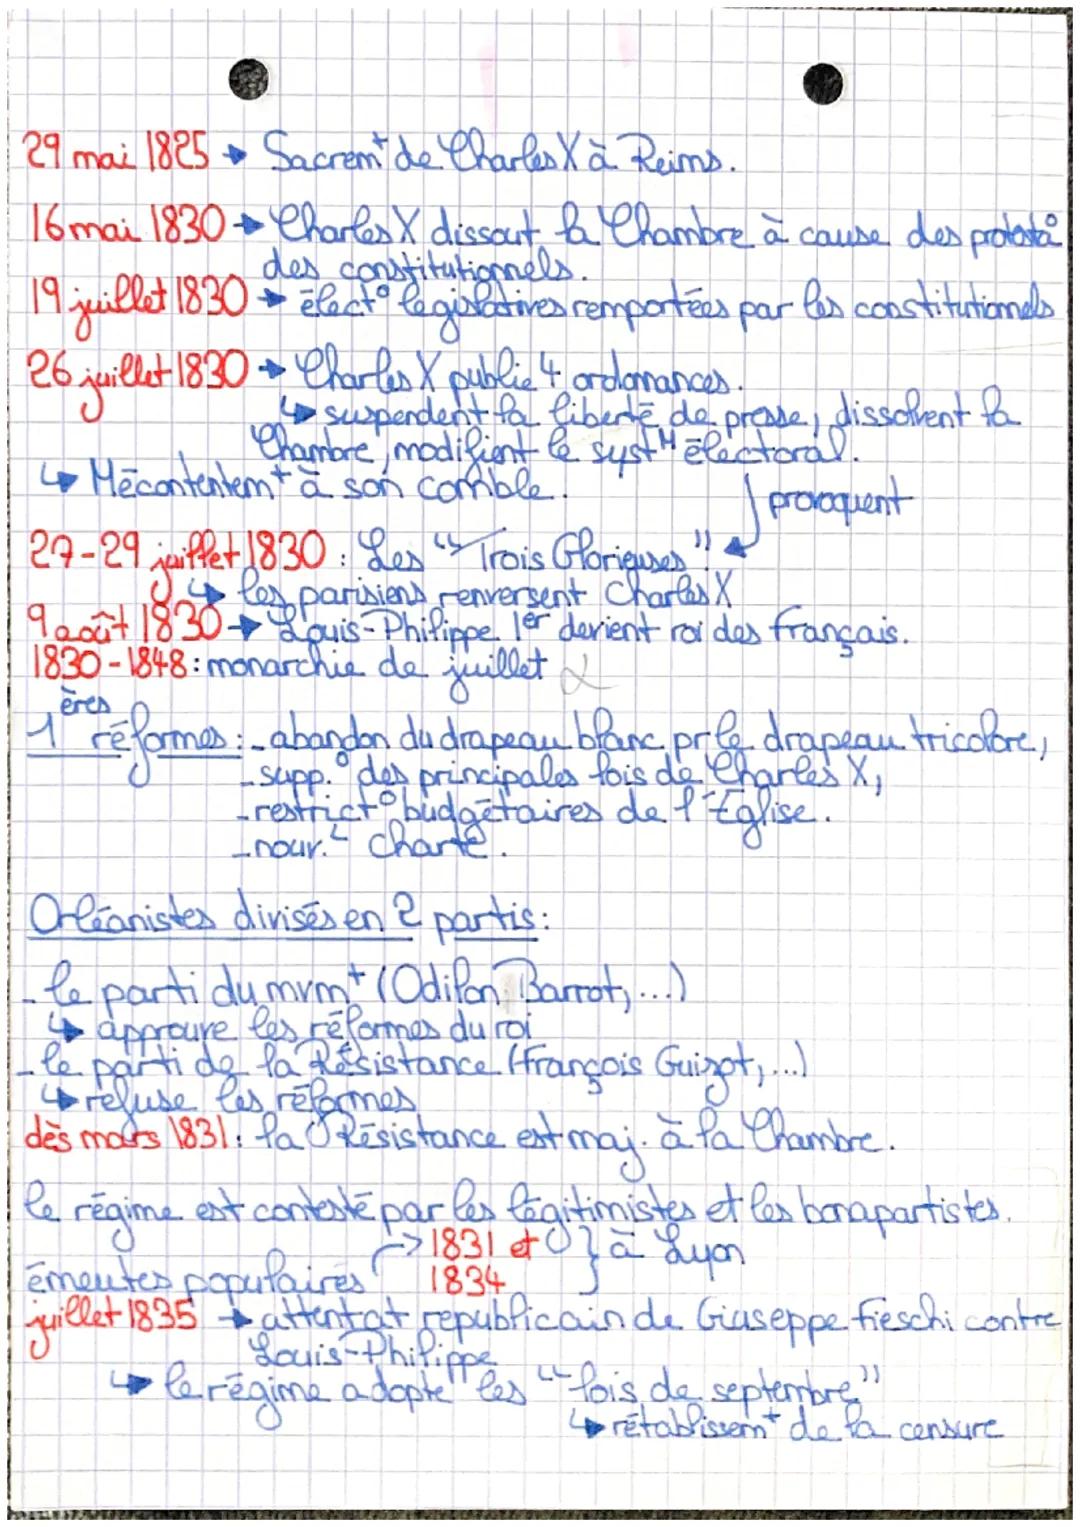 29 mai 1825 → Sacrem^t de Charles X à Reims.
16 mai 1830 → Charles X dissout la Chambre à cause des protestat°
des constitutionnels.
19 juillet 1830 → élect° législatives remportées par les constitutionnels
26 juillet 1830 → Charles X publie 4 ordonnances.
↳ suspendent la liberté de presse, dissolvent la
Chambre, modifient le syst^M électoral.
↳ Mécontentem^t à son comble.
provoquent
27-29 juillet 1830 : Les "Trois Glorieuses"!
↳ les parisiens renversent Charles X
9 août 1830 → Louis-Philippe 1er devient roi des français.
1830-1848 : monarchie de juillet
1ères réformes : - abandon du drapeau blanc pr le drapeau tricolore,
- supp.° des principales lois de Charles X,
- restrict° budgétaires de l'Église.
- nouv.^L charte.
Orléanistes divisés en 2 partis :
- le parti du mvm^t (Odilon Barrot, ...)
↳ approuve les réformes du roi
- le parti de la Résistance (François Guizot, ...)
↳ refuse les réformes
dès mars 1831 : la Résistance est maj. à la Chambre.
le régime est contesté par les légitimistes et les bonapartistes.
→ 1831 et } à Lyon
émeutes populaires 1834
juillet 1835 → attentat republicain de Giuseppe Fieschi contre
Louis-Philippe
↳ le régime adopte les "lois de septembre"
↳ rétablissem^t de la censure